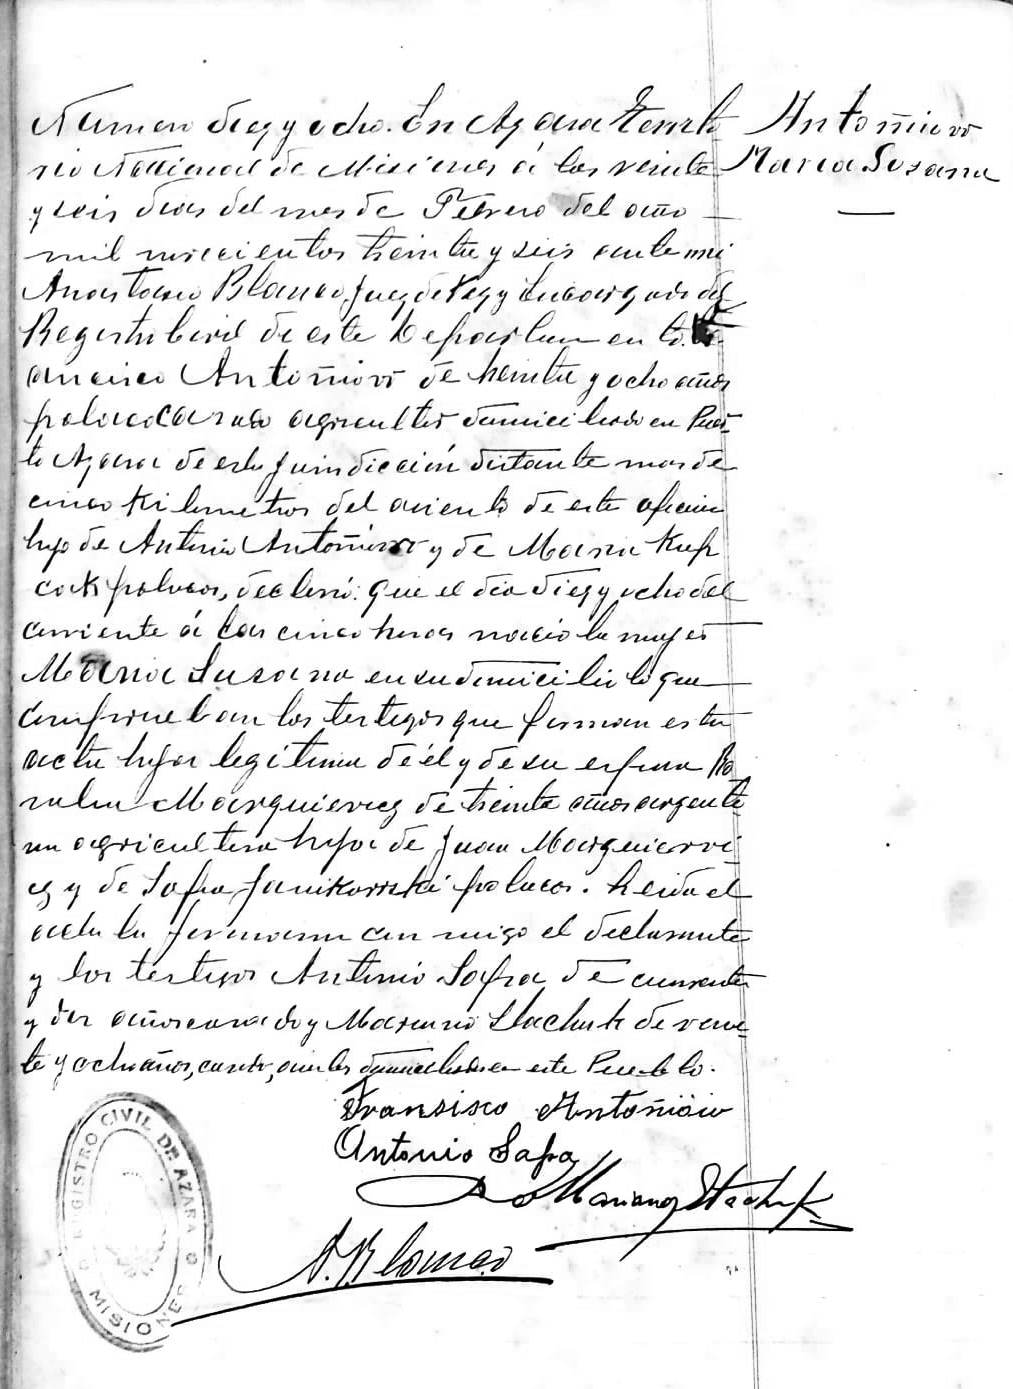 Numero diez y ocho. En Azara Territo
rio Nacional de Misiones á los veinte
y seis dias del mes de Febrero del año
mil novecientos treinta y seis ante mi
Anastasio Blanco, Juez de Paz y Encargado del
Registro Civil de este Departamento.
ancisco Antoñiovi de treinta y ocho años
polaco casado agricultor domiciliado en Puer
to Azara de esta jurisdicción distante mas de
cinco kilometros del asiento de esta oficina
hijo de Antonio Antoñiovi y de Maria Kup
polacos, declaró: que el dia diez y ocho del
corriente á las cinco horas nació la mujer
Maria Susana en su domicilio lo que
comprueban los testigos que firman esta
acta hija legitima de él y de su esposa Ro
salia Marquievicz de treinta años argenti
na agricultora hija de Juan Marquiervi
cz y de Sofia Janikorski polacos. Leida el
acta la firmaron con migo el declarante
y los testigos Antonio Sapa de cuarenta
y dos años casado y Mariano Stachuk de vein
te y ocho años, casado, ambos domiciliados en este Pueblo.
Fransisco Antoñiòiv
Antonio Sapa
Mariano Stachuk
A. Blanco
Antoñiovi
Maria Susana
REGISTRO CIVIL DE AZARA
MISIONES